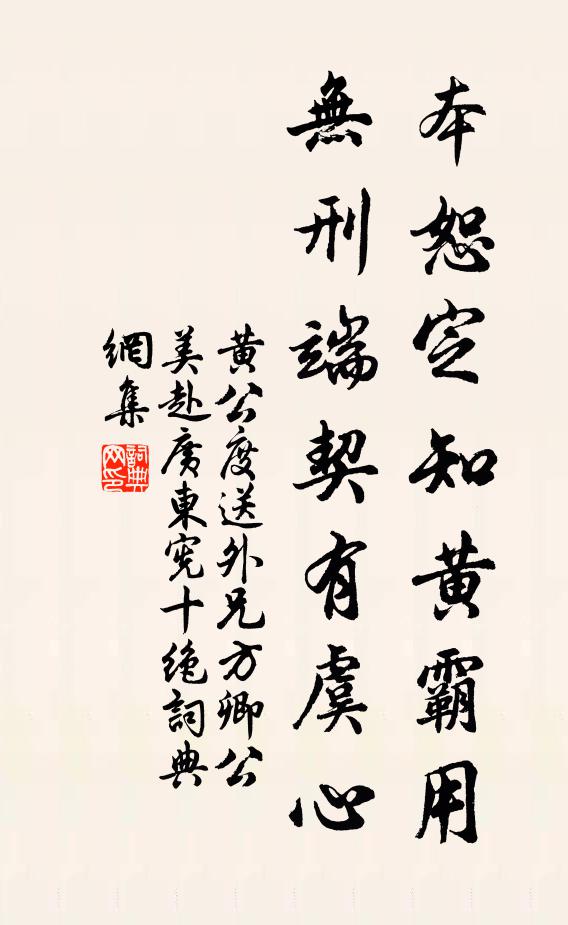 本恕定知黄霸用
無刑端契有虞心
黄公度送外兄方卿公
美赴廣東憲十絶詞典
網集
詞典
网印